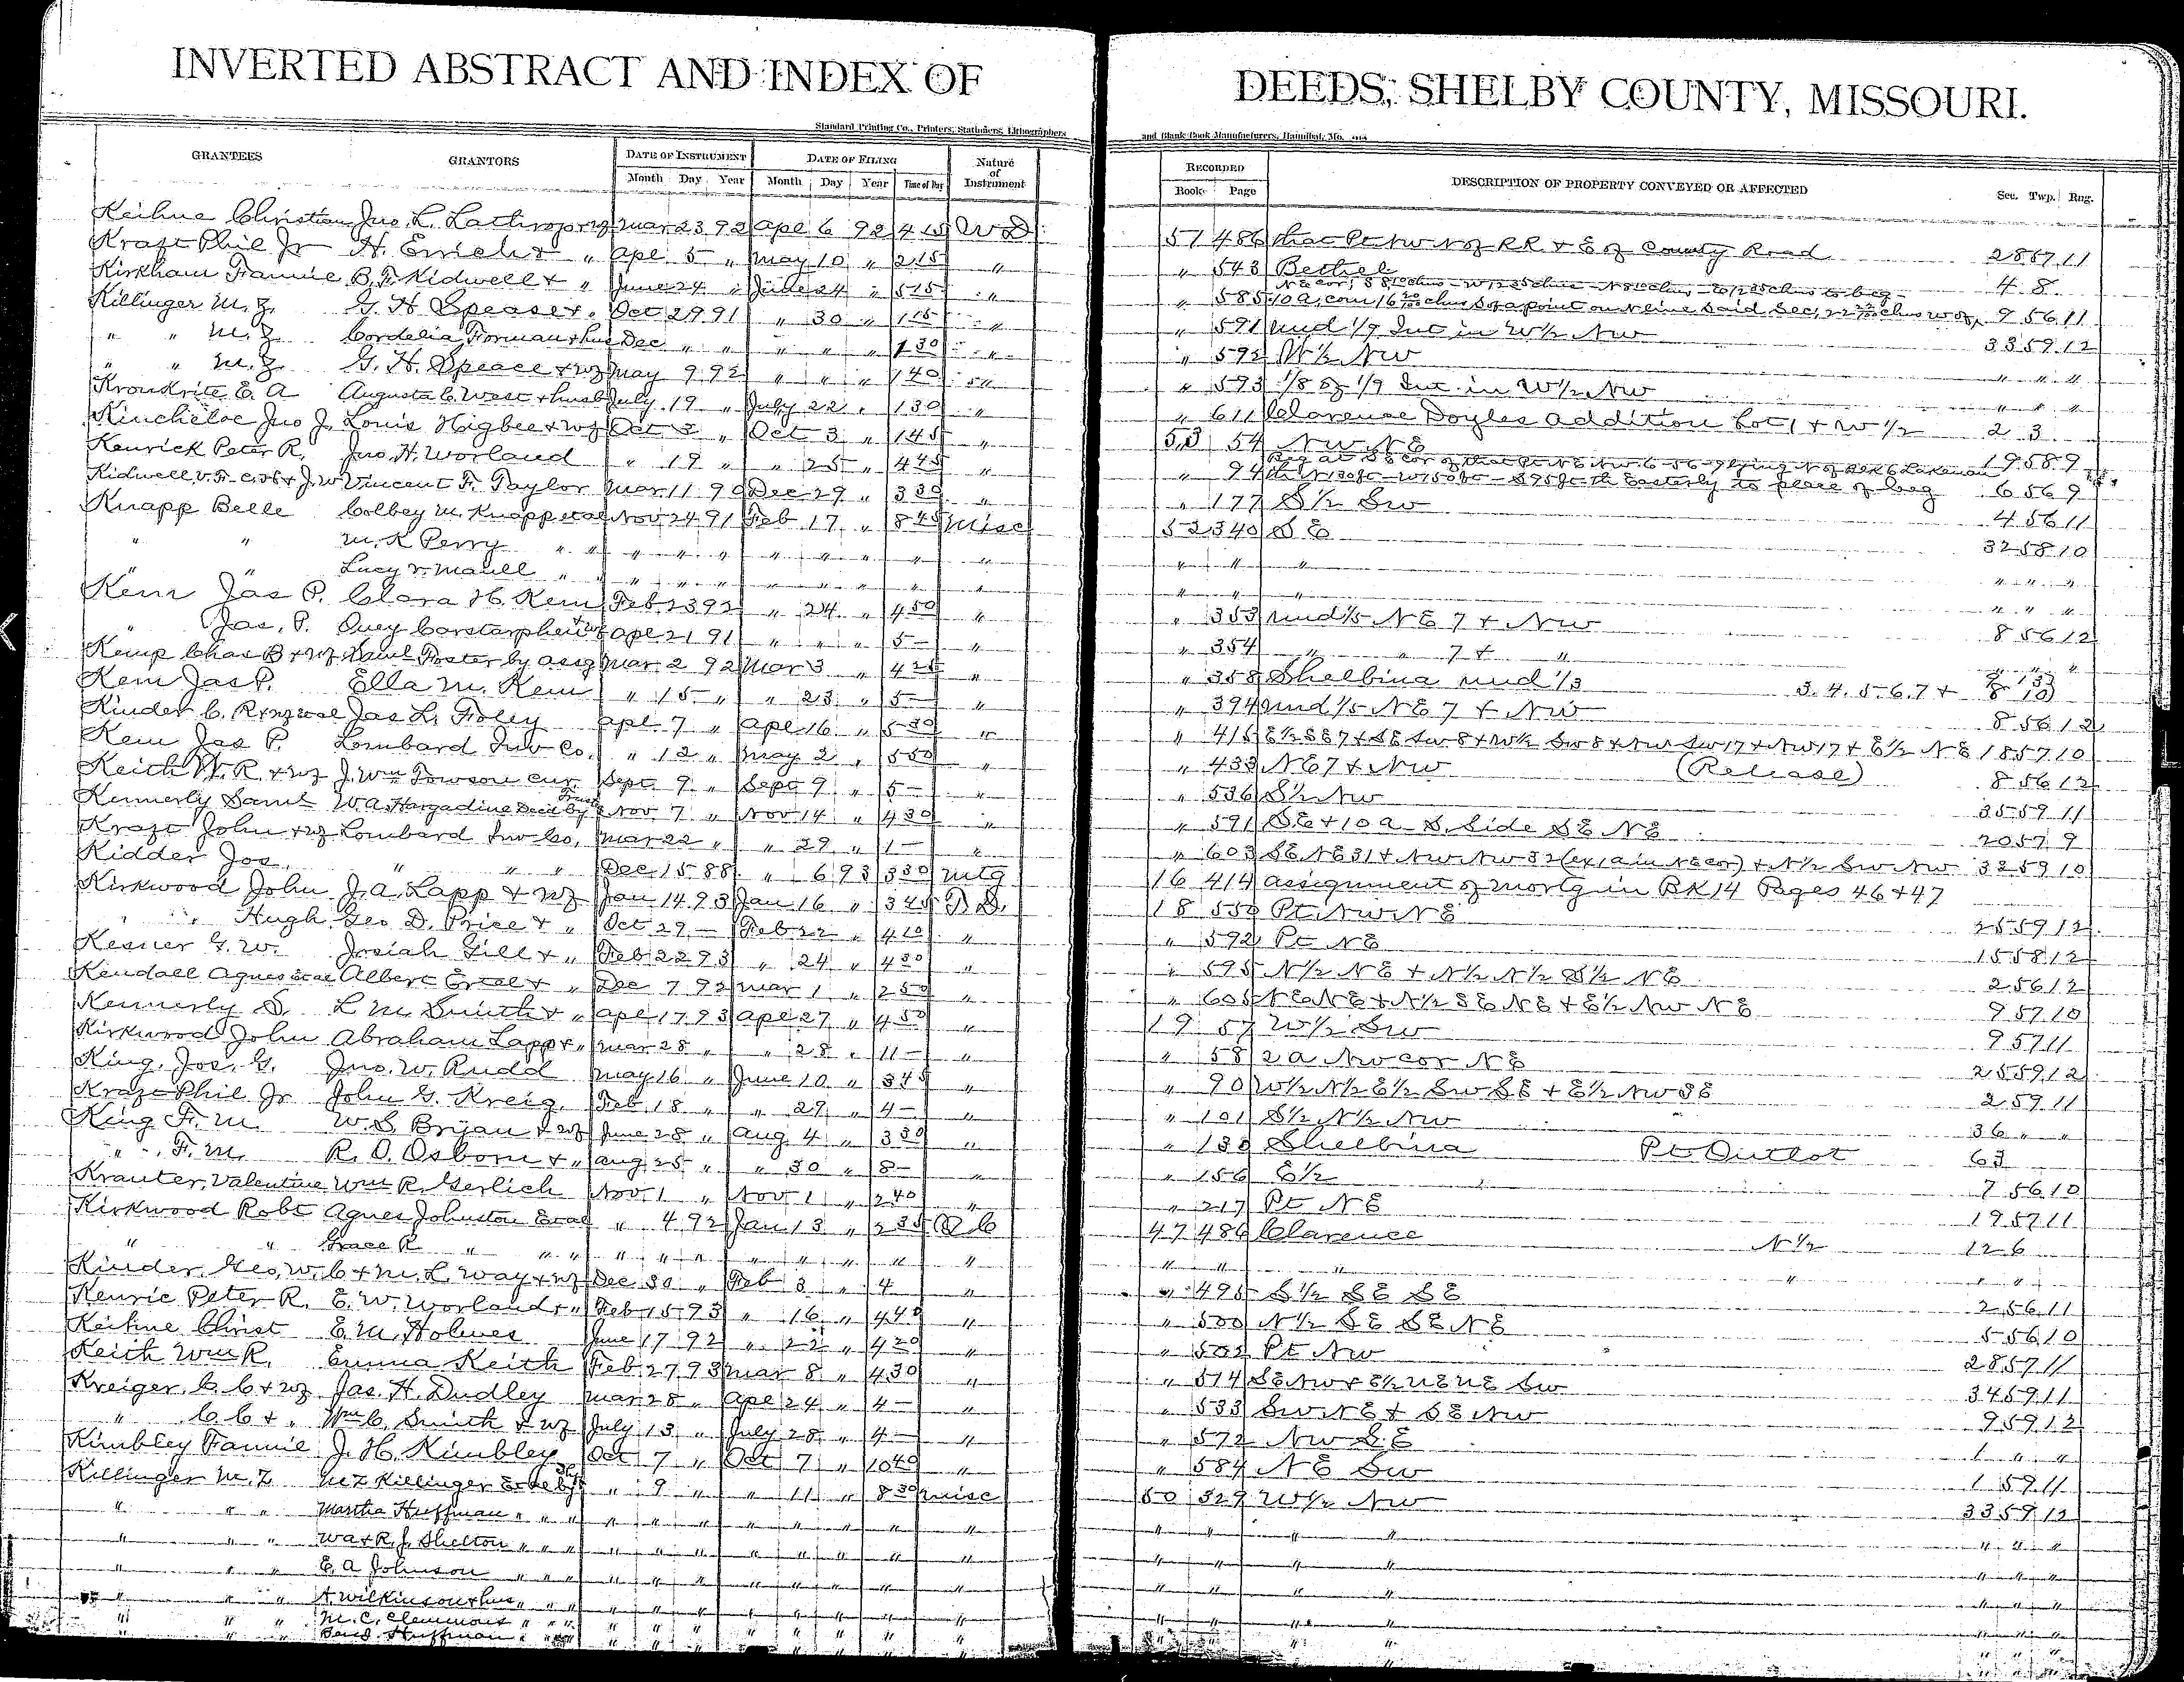 INVERTED ABSTRACT AND INDEX OF DEEDS, SHELBY COUNTY, MISSOURI.
Standard Printing Co., Printers, Stationers, Lithographers and Blank Book Manufacturers, Hannibal, Mo.
GRANTEES GRANTORS DATE OF INSTRUMENT DATE OF FILING Nature of Instrument RECORDED DESCRIPTION OF PROPERTY CONVEYED OR AFFECTED Sec. Twp. Rng.
Month Day Year Month Day Year Time of Day Book Page
Keihne Christian Jno. L. Lathrop & wf Mar 23 92 Apl 6 92 4 15 W D 51 486 that Pt NW N of RR & E of County Road 28 57 11
Kraft Phil Jr H. Emrich & " Apl 5 " May 10 " 2 15 " " 543 Bethel 4 8
Kirkham Fannie B. F. Kidwell & " June 24 " June 24 " 5 15 " " 585 10 a, com 16 chns S of a point on N line said Sec, 22 chns W of 9 56 11
Killinger M. Z. G. H. Spease & " Oct 29 91 " 30 " 1 15 " " 591 und 1/9 Int in W½ NW 33 59 12
" " M. Z. Cordelia Forman & hus Dec " " " " " 1 30 " " 592 W½ NW " " "
" " M. Z. G. H. Spease & wf May 9 92 " " " 1 40 " " 593 1/8 of 1/9 Int in W½ NW " " "
Kronkrite E. A Augusta C. West & husb July 19 " July 22 " 1 30 " " 611 Clarence Doyles Addition Lot 1 & W ½ 2 3
Kincheloe Jno J. Louis Higbee & wf Oct 3 " Oct 3 " 1 45 " 53 54 NW NE 19 58 9
Kenrick Peter R. Jno. H. Worland " 19 " " 25 " 4 45 " " 94 6 56 9
Kidwell V. F. C. J. & J. W Vincent F. Taylor Mar 11 90 Dec 29 " 3 30 " " 177 S½ SW 4 56 11
Knapp Belle Colbey M. Knapp et al Nov 24 91 Feb 17 " 8 45 Misc 52 340 S E 32 58 10
" " M. K Perry " " " " " " " " " " " " " " " "
" " Lucy V. Maull " " " " " " " " " " " " " " " "
Kem Jas P. Clara H. Kem Feb 23 92 " 24 " 4 50 " " 353 und 1/5 NE 7 & NW 8 56 12
" Jas. P. Ouey Carstarphen & wf Apl 21 91 " " " 5 — " " 354 " " 7 & " " " "
Kemp Chas B & wf Saml Foster by assg Mar 2 92 Mar 3 " 4 25 " " 358 Shelbina und 1/3 3. 4. 5. 6. 7 & 8
Kem Jas P. Ella M. Kem " 15 " " 23 " 5 — " " 394 und 1/5 NE 7 & NW 8 56 12
Kinder C. R & wf et al Jas L. Foley Apl 7 " Apl 16 " 5 30 " " 415 E½ SE 7 & SE SW 8 & W½ SW 8 & NW SW 17 & NW 17 & E½ NE 18 57 10
Kem Jas P. Lombard Inv Co. " 12 " May 2 " 5 50 " " 433 NE 7 & NW (Release) 8 56 12
Keith W. R. & wf J. Wm Towson cur Sept 9 " Sept 9 " 5 — " " 536 S½ NW 35 59 11
Kennerly Saml W. A. Hargadine Decd by Trust Nov 7 " Nov 14 " 4 30 " " 591 SE & 10 a S. Side SE NE 20 57 9
Kraft John & wf Lombard Inv Co. Mar 22 " " 29 " 1 — " " 603 SE NE 31 & NW NW 32 (ex 1 a in NE cor) & N½ SW NW 32 59 10
Kidder Jos. " " " Dec 15 88 " 6 93 3 30 Mtg 16 414 assignment of mortg in BK 14 Pages 46 & 47
Kirkwood John J. A. Lapp & wf Jan 14 93 Jan 16 " 3 45 18 550 Pt NW NE 25 59 12
" " Hugh Geo D. Price & " Oct 29 — Feb 22 " 4 10 " " 592 Pt NE 15 58 12
Kesner G. W. Josiah Gill & " Feb 22 93 " 24 " 4 30 " " 595 N½ NE & N½ N½ S½ NE 2 56 12
Kendall Agnes et al Albert Ertel & " Dec 7 92 Mar 1 " 2 50 " " 605 NE NE & N½ SE NE & E½ NW NE 9 57 10
Kennerly S. L M. Smith & " Apl 17 93 Apl 27 " 4 50 " 19 57 W½ SW 9 57 11
Kirkwood John Abraham Lapp & " Mar 28 " " 28 " 11 — " " 58 2 a NW cor NE 25 59 12
King, Jos. G. Jno. W. Rudd May 16 " June 10 " 3 45 " " 90 W½ N½ E½ SW SE & E½ NW SE 2 59 11
Kraft Phil Jr John G. Kreig Feb 18 " " 29 " 4 — " " 101 S½ N½ NW 36 " "
King F. M. W. S. Bryan & wf June 28 " Aug 4 " 3 30 " " 130 Shelbina Pt Outlot 63
" F. M. R. O. Osborn & " Aug 25 " " 30 " 8 — " " 156 E½ 7 56 10
Krauter, Valentine Wm R. Gerlich Nov 1 " Nov 1 " 2 40 " " 217 Pt NE 19 57 11
Kirkwood Robt Agnes Johnston et al " 4 92 Jan 13 " 2 35 Q C 47 486 Clarence N½ 12 6
" " Grace R " " " " " " " " " " " " " " " "
Kinder, Geo. W. C & M. L. Way & wf Dec 30 " Feb 3 " 4 " " 495 S½ SE SE 2 56 11
Kenric Peter R. E. W. Worland & " Feb 15 93 " 16 " 4 40 " " 500 N½ SE SE NE 5 56 10
Keihne Christ E. M. Holmes June 17 92 " 22 " 4 20 " " 502 Pt NW 28 57 11
Keith Wm R. Emma Keith Feb 27 93 Mar 8 " 4 30 " " 514 SE NW & E½ NE NE SW 34 59 11
Kreiger, C. C & wf Jas. H. Dudley Mar 28 " Apl 24 " 4 — " " 533 SW NE & SE NW 9 59 12
" C. C & " Wm C. Smith & wf July 13 " July 28 " 4 — " " 572 NW SE 1 " "
Kimbley Fannie J. H. Kimbley Oct 7 " Oct 7 " 10 40 " " 584 NE SW 1 59 11
Killinger M. Z M Z Killinger " 9 " " 11 " 8 30 Misc 50 329 W½ NW 33 59 12
" " " Martha Huffman " " " " " " " " " " " " " " " " "
" " " W A & R. J. Shelton " " " " " " " " " " " " " " " " "
" " " E. A Johnson " " " " " " " " " " " " " " " " "
" " " A Wilkinson & hus " " " " " " " " " " " " " " " " "
" " " M. C. Clemmons " " " " " " " " " " " " " " " " "
" " " Benj. Huffman " " " " " " " " " " " " "